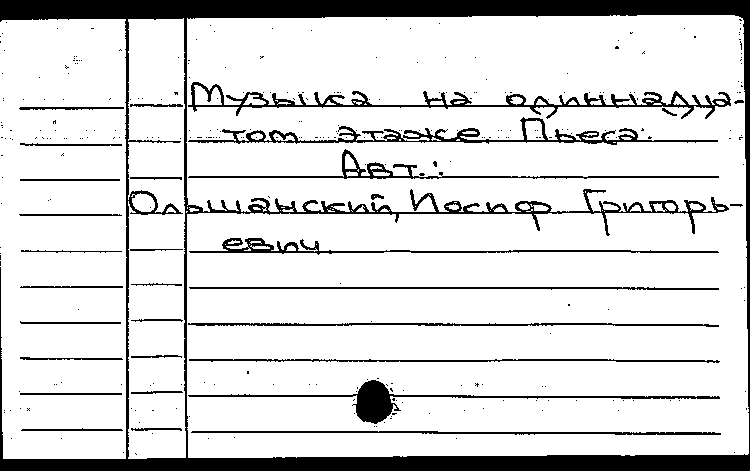 Музыка на одиннадца-
том этаже. Пьеса.
Авт.:
Ольшанский, Иосиф Григорь-
евич.